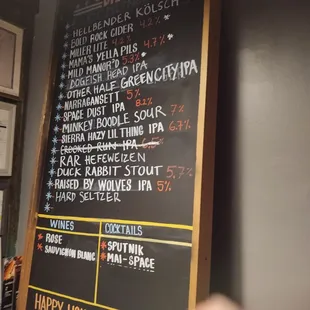 HELLBENDER KÖLSCH 4.2%
BOLD ROCK CIDER
MILLER LITE 4.2%
MAMA'S YELLA PILS 4.7%
MILD MANOR'D 5.3%
DOGFISH HEAD IPA
OTHER HALF GREEN CITY IPA
NARRAGANSETT 5%
SPACE DUST IPA 8.2%
MUNKEY BOODLE SOUR 7%
SIERRA HAZY LIL THING IPA 6.7%
CROOKED RUN IPA
RAR HEFEWEIZEN
DUCK RABBIT STOUT 5.7%
RAISED BY WOLVES IPA 5%
HARD SELTZER
WINES
ROSE
SAUVIGNON BLANC
COCKTAILS
SPUTNIK
MAI-SPACE
HAPPY